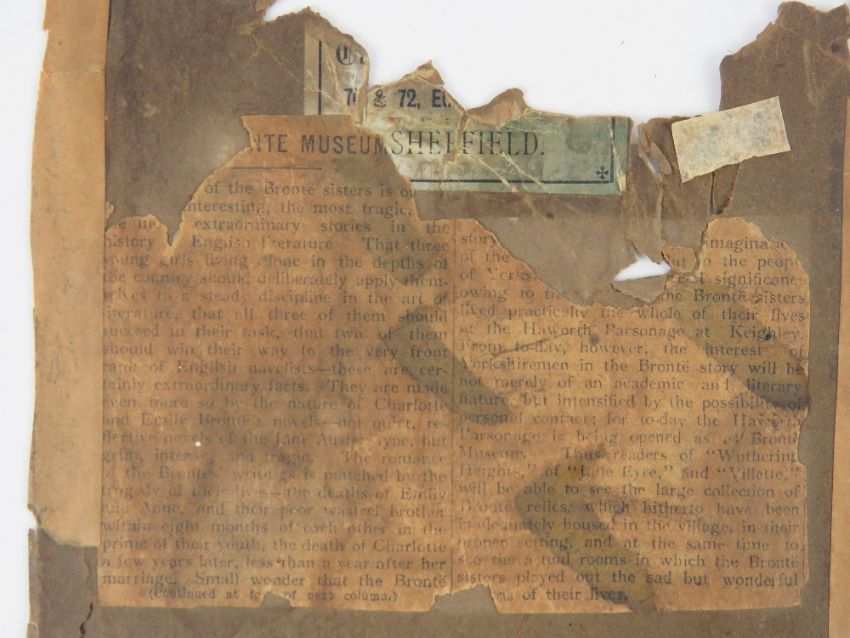 & 72,
MUSEUM
SHEFFIELD.
of the Brontë sisters is
interesting, the most tragic,
extraordinary stories in the
history English literature That three
young girls living alone in the depths of
the country should deliberately apply them-
selves to a steady discipline in the art of
literature, that all three of them should
succeed in their task, that two of them
should win their way to the very front
rank of English novelists—these are cer-
tainly extraordinary facts. They are made
even more so by the nature of Charlotte
and Emily Brontë's novels—not quiet, re-
flective novels of the Jane Austen type, but
grim, intense, and tragic. The romance
of the Brontës' writings is matched by the
tragedy of their lives—the deaths of Emily
and Anne, and their poor wastrel brother
within eight months of each other in the
prime of their youth, the death of Charlotte
a few years later, less than a year after her
marriage. Small wonder that the Brontë
(Continued at top of next column.)
story
of the but to the people
of significance
owing to the Brontë sisters
lived practically the whole of their lives
at the Haworth Parsonage at Keighley.
From to-day, however, the interest of
Yorkshiremen in the Brontë story will be
not merely of an academic and literary
nature, but intensified by the possibility of
personal contact; for to-day the Haworth
Parsonage is being opened as a Brontë
Museum. Thus readers of "Wuthering
Heights," of "Jane Eyre," and "Villette,"
will be able to see the large collection of
Brontë relics, which hitherto have been
inadequately housed in the village, in their
proper setting, and at the same time to
see the actual rooms in which the Brontë
sisters played out the sad but wonderful
of their lives.